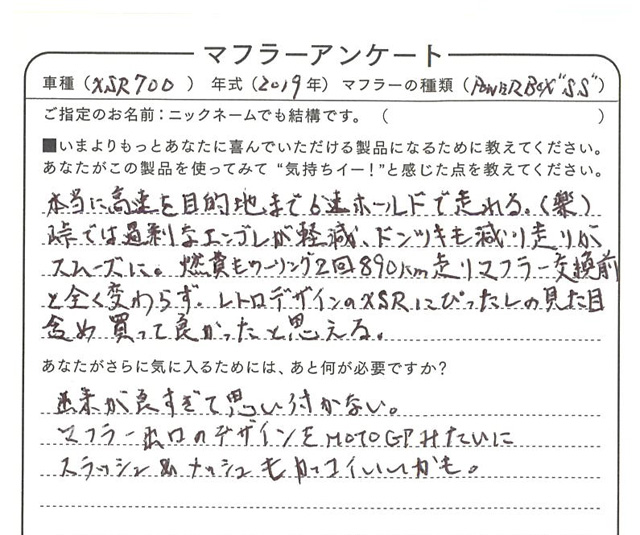 マフラーアンケート
車種（XSR700） 年式（2019年）マフラーの種類（POWERBOX"SS"）
ご指定のお名前：ニックネームでも結構です。（ ）
■いまよりもっとあなたに喜んでいただける製品になるために教えてください。
あなたがこの製品を使ってみて “気持ちイー！”と感じた点を教えてください。
本当に高速を目的地まで6速ホールドで走れる。（楽）
峠では過剰なエンブレが軽減、ドンツキも減り走りが
スムーズに。燃費もツーリング2回890km走りマフラー交換前
と全く変わらず。レトロデザインのXSRにぴったしの見た目
含め買って良かったと思える。
あなたがさらに気に入るためには、あと何が必要ですか？
出来が良すぎて思い付かない。
マフラー出口のデザインをMOTOGPみたいに
スラッシュ&メッシュもカッコイイしかも。